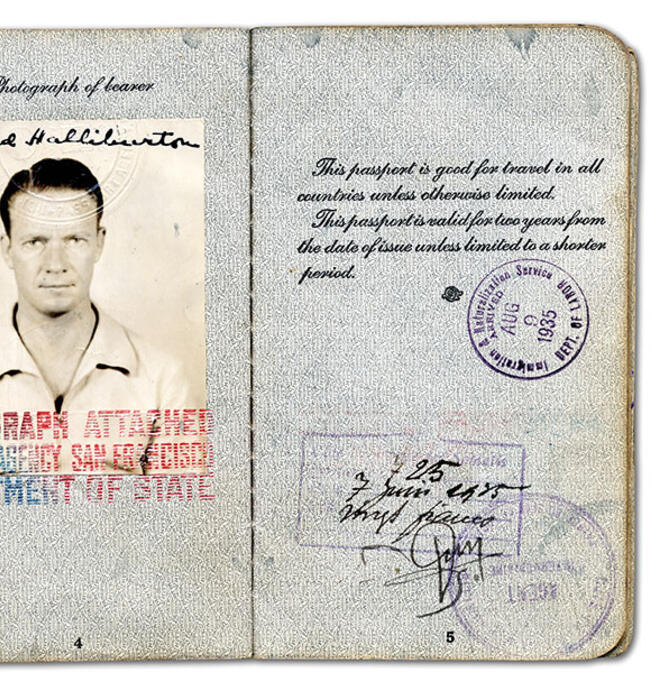 Photograph of bearer
d Halliburton
RAPH ATTACHED
AGENCY SAN FRANCISCO
MENT OF STATE
4
This passport is good for travel in all
countries unless otherwise limited.
This passport is valid for two years from
the date of issue unless limited to a shorter
period.
Immigration & Naturalization Service
DEPT. OF LABOR
ARRIVED
AUG
9
1935
7
5